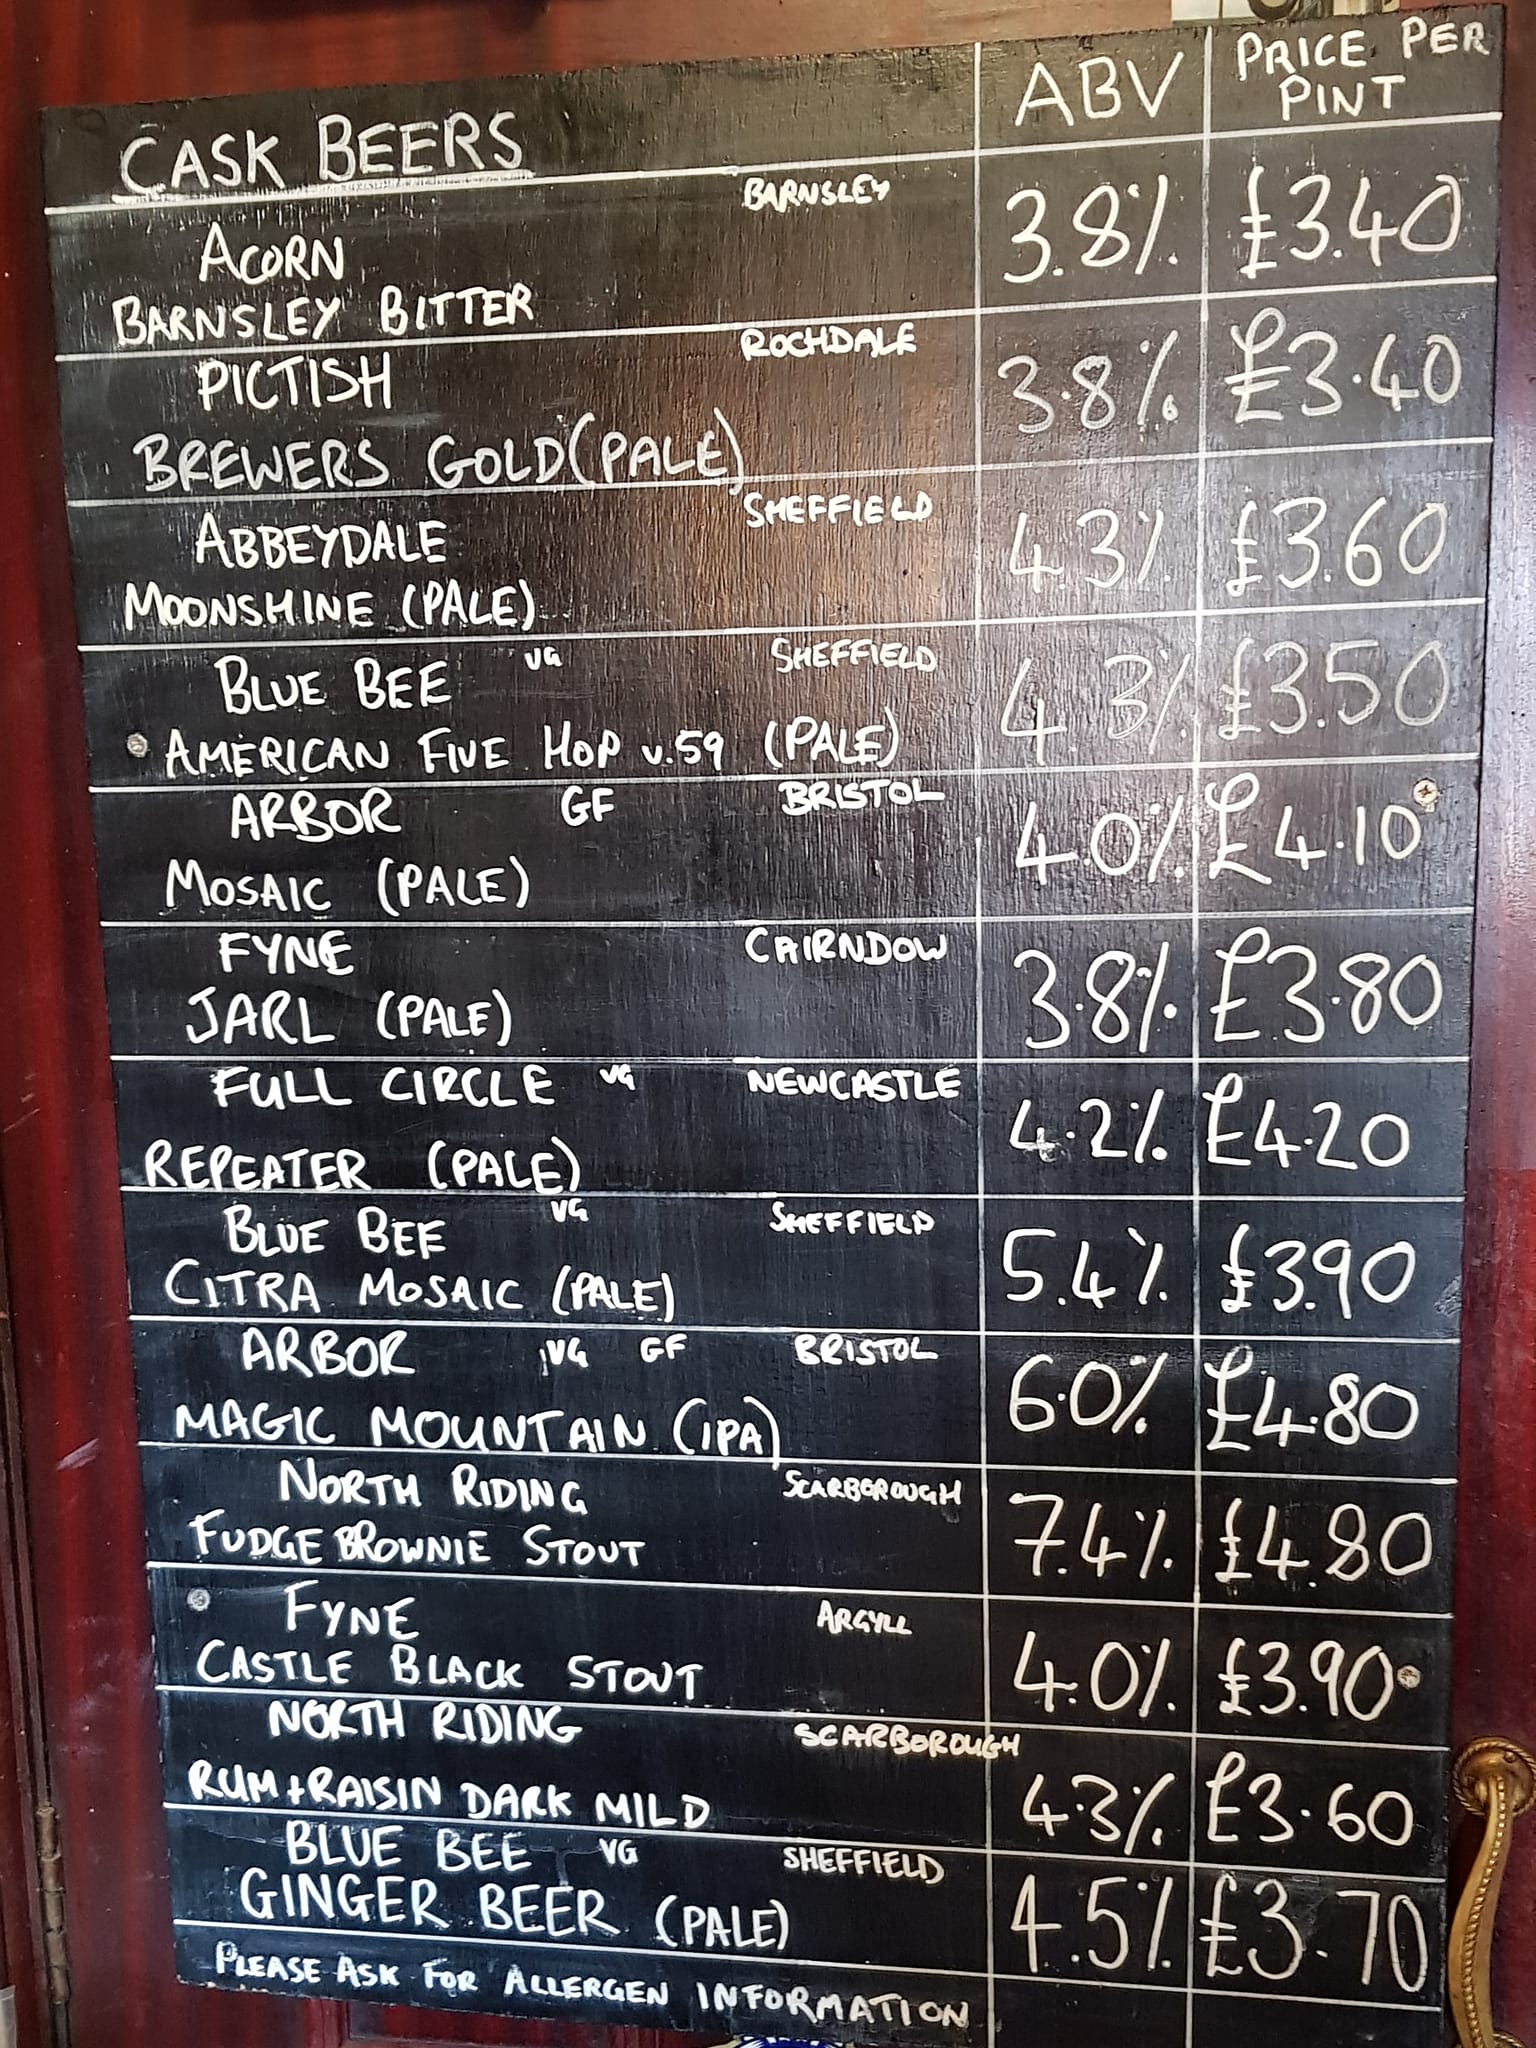 CASK BEERS ABV PRICE PER PINT
BARNSLEY
ACORN 3.8% £3.40
BARNSLEY BITTER
ROCHDALE
PICTISH 3.8% £3.40
BREWERS GOLD (PALE)
SHEFFIELD
ABBEYDALE 4.3% £3.60
MOONSHINE (PALE)
BLUE BEE VG SHEFFIELD 4.3% £3.50
AMERICAN FIVE HOP v.59 (PALE)
ARBOR GF BRISTOL 4.0% £4.10
MOSAIC (PALE)
FYNE CAIRNDOW 3.8% £3.80
JARL (PALE)
FULL CIRCLE VG NEWCASTLE 4.2% £4.20
REPEATER (PALE)
BLUE BEE VG SHEFFIELD 5.4% £3.90
CITRA MOSAIC (PALE)
ARBOR VG GF BRISTOL 6.0% £4.80
MAGIC MOUNTAIN (IPA)
NORTH RIDING SCARBOROUGH 7.4% £4.80
FUDGE BROWNIE STOUT
FYNE ARGYLL 4.0% £3.90
CASTLE BLACK STOUT
NORTH RIDING SCARBOROUGH 4.3% £3.60
RUM + RAISIN DARK MILD
BLUE BEE VG SHEFFIELD 4.5% £3.70
GINGER BEER (PALE)
PLEASE ASK FOR ALLERGEN INFORMATION